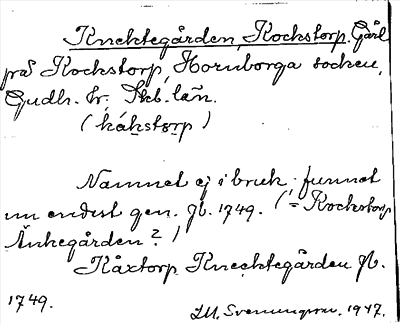 Knektegården, Kockstorp. Gård
på Kockstorp, Hornborga socken,
Gudh. hr, Skb. län.
(kåkstɔrp)
Namnet ej i bruk; funnet
nu endast gen. Jb. 1749. (= Kockstorp
Änkegården?)
Kåxtorp Knecktegården Jb.
1749.
Svenungson. 1947.